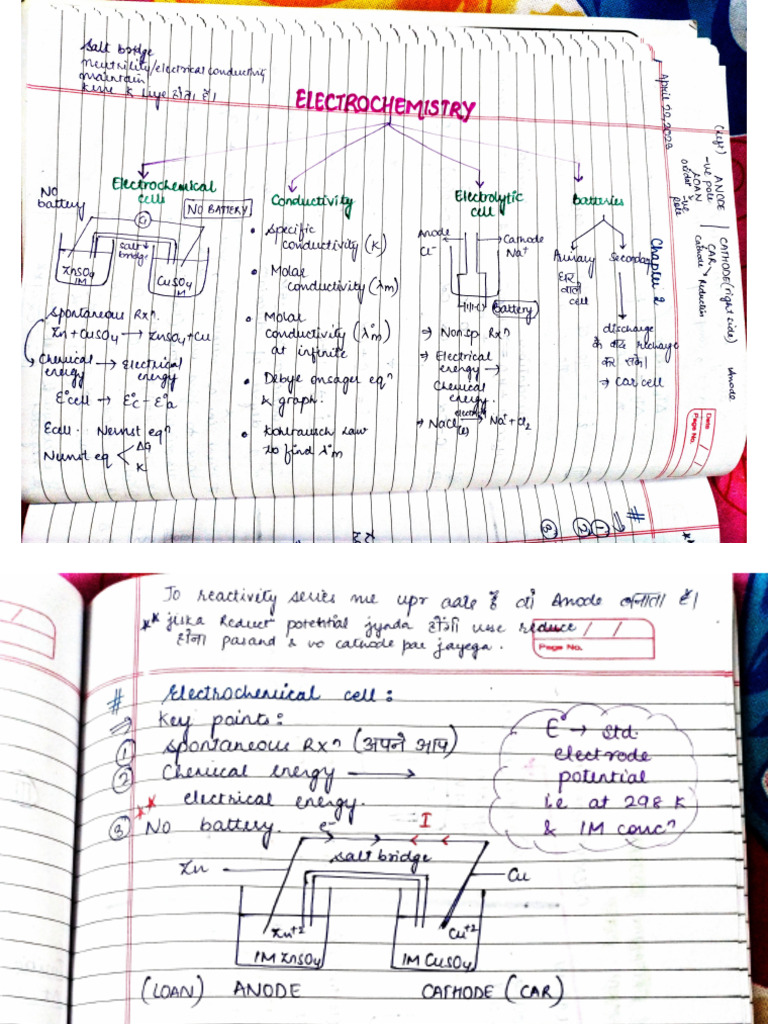 Salt bridge
neutrility/electrical conducting
maintain
karne k liye होता है।
ELECTROCHEMISTRY
April 20, 2023
Chapter 2
(left)
ANODE
-ve pole
LOAN
oxidatn -ve
pole
CATHODE (right side)
CAR
Cathode Reduction
Anode
Date / /
Page No.
Electrochemical
cells
No
battery
NO BATTERY
G
salt
bridge
ZnSO4
1M
CuSO4
1M
Spontaneous Rxn.
Zn + CuSO4 → ZnSO4 + Cu
Chemical → Electrical
energy energy
E°cell → E°c - E°a
Ecell. Nernst eqn
Nernst eq < ΔG
K
Conductivity
• Specific
conductivity (K)
• Molar
conductivity (λm)
• Molar
conductivity (λ°m)
at infinite
• Debye onsager eqn
& graph.
• Kohlrausch Law
to find λ°m
Electrolytic
cell
Anode
Cl-
Cathode
Na+
Battery
⇒ Nonsp Rxn
⇒ Electrical
energy →
Chemical
energy.
⇒ NaCl(l) → Na+ + Cl2
Batteries
Primary
घर
वाले
cell
Secondary
discharge
के बाद recharge
कर सके।
→ Car cell
# ⇒ ① ② ③
Jo reactivity series me upr aate है वो Anode बनाता है।
** jiska Reductn potential jyada होगी use reduce
होना pasand & vo cathode par jayega.
/ /
Page No.
# Electrochemical cell:
⇒ Key points:
① Spontaneous Rxn (अपने आप)
② Chemical energy →
** electrical energy.
③ No battery.
E° → std.
electrode
potential
i.e at 298 K
& 1M concn
e-
I
salt bridge
Zn
Cu
Zn+2
Cu+2
1M ZnSO4
1M CuSO4
(LOAN) ANODE
CATHODE (CAR)